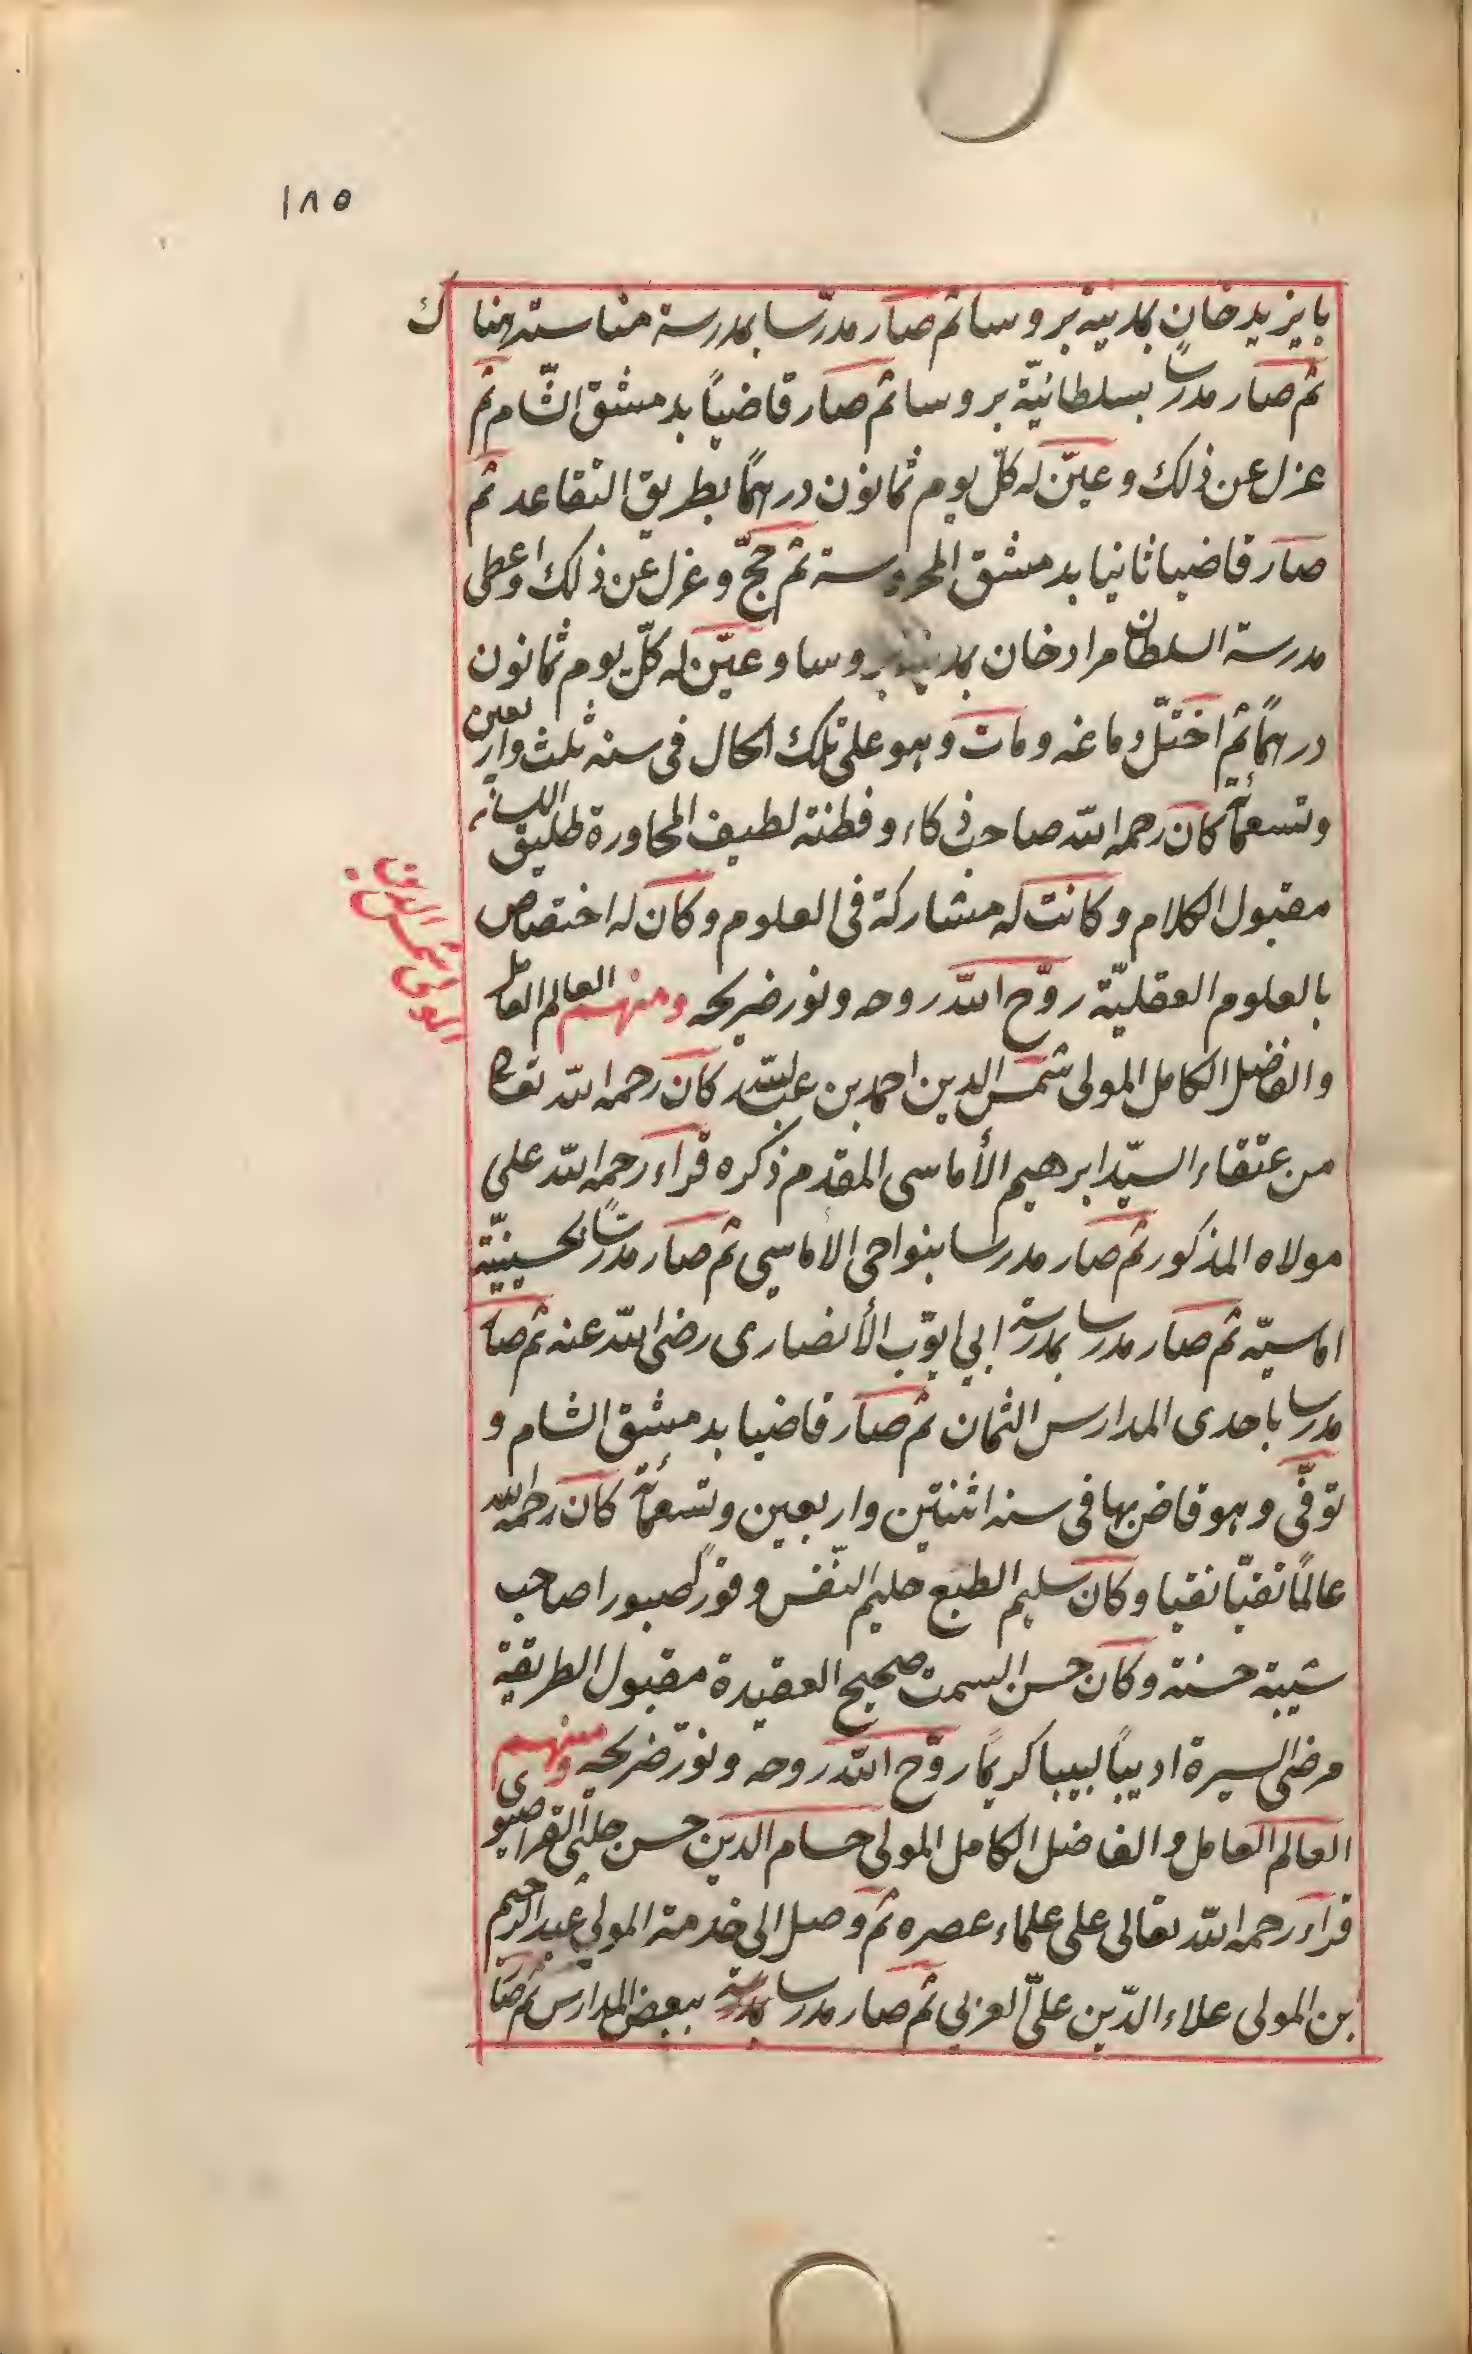 ١٨٥
بايزيدخان بمدينة بروسا ثم صار مدرّسا بمدرسة مناستر هناك
ثم صار مدرسا بسلطانيّة بروسا ثم صار قاضيًا بدمشق الشّام ثم
عزل عن ذلك وعيّن له كلّ يوم ثمانون درهمًا بطريق التقاعد ثم
صار قاضيا ثانيا بدمشق المحروسة ثم حجّ وعزل عن ذلك واعطى
مدرسة السلطان مرادخان بمدينة بروسا وعيّن له كلّ يوم ثمانون
درهمًا ثم اختلّ دماغه ومات وهو على تلك الحال فى سنة ثلث واربعين
وتسعمائة كان رحمه الله صاحب ذكاء وفطنة لطيف المحاورة طليق اللسان
مقبول الكلام وكانت له مشاركة فى العلوم وكان له اختصاص
بالعلوم العقليّة روّح الله روحه ونور ضريحه ومنهم العالم العامل
والفاضل الكامل المولى شمس الدين احمد بن عبدالله كان رحمه الله تعالى
من عتقاء السيّد ابرهيم الأماسى المقدم ذكره قراء رحمه الله على
مولاه المذكور ثم صار مدرسا بنواحى الاماسي ثم صار مدرسًا بحسينيّة
اماسيّه ثم صار مدرسا بمدرسة ابي ايوّب الأنصارى رضى الله عنه ثم صار
مدرسا باحدى المدارس الثمان ثم صار قاضيا بدمشق الشام و
توفّى وهو قاض بها فى سنة اثنتين واربعين وتسعمائة كان رحمه الله
عالمًا تقيّا نقيا وكان سليم الطبع حليم النّفس وقورًا صبورا صاحب
شيبة حسنة وكان حسن السمت صحيح العقيدة مقبول الطريقة
مرضى السيرة اديبًا لبيبا كريمًا روّح الله روحه ونوّر ضريحه ومنهم
العالم العامل والفاضل الكامل المولى حسام الدين حسن جلبى القراصيوى
قراء رحمه الله تعالى على علماء عصره ثم وصل الى خدمة المولى عبدالرحيم
بن المولى علاء الدّين علىّ العربي ثم صار مدرسا بمدرسة ببعض المدارس ثم صار
المولى شمس الدين